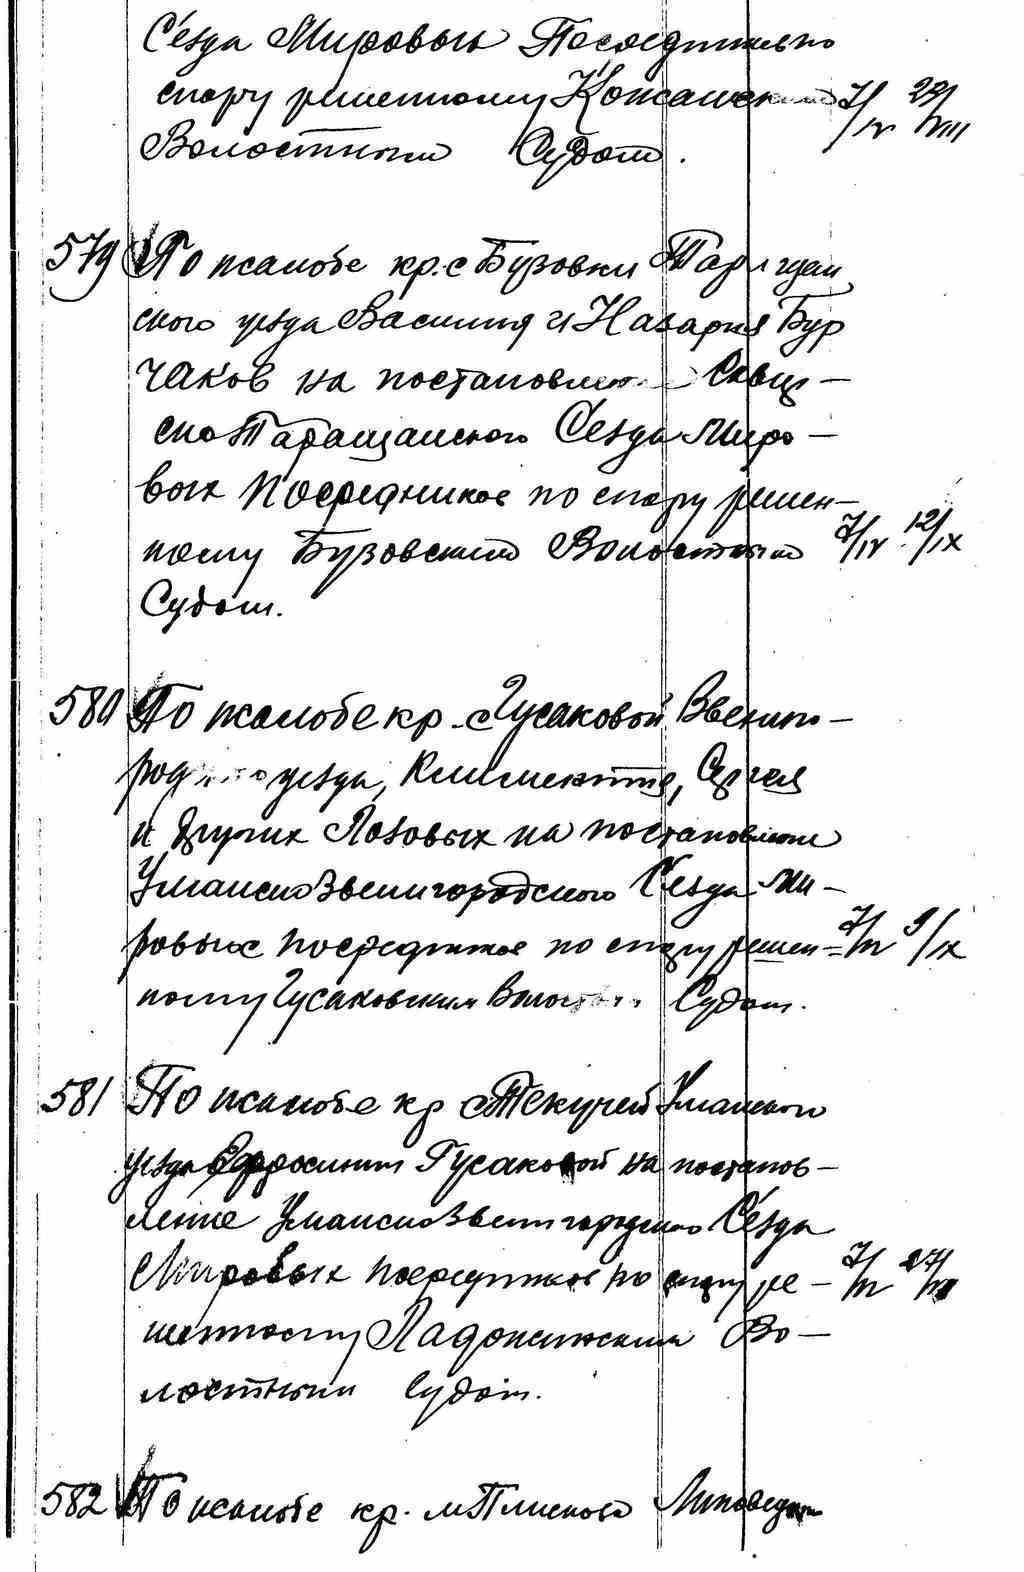 Сѣзда Мировых Посредников по
спору решенному Конеаменским 7/IV 29/VIII
Волостным Судом.
579 По жалобе кр. с Бузовки Таращан
ского уезда Василия и Назария Бур
чаков на постановление Сквир-
ско Таращанского Сѣзда Миро-
вых Посредников по спору решен-
ному Бузовским Волостным 7/IV 12/IX
Судом.
580 По жалобе кр. с Гусаковой Звениго-
род уезда, Климентия, Сергея
и других Лозовых на постановление
Уманско Звенигородского Сѣзда Ми-
ровых посредников по спору решен- 7/IV 9/IX
ному Гусаковским Волостным Судом.
581 По жалобе кр с Текучей Уманского
уезда Ефросинии Гусаковой на постанов-
ление Уманско Звенигородского Сѣзда
Мировых посредников по спору ре- 7/IV 27/VIII
шенному Ладыжинским Во-
лостным Судом.
582 По жалобе кр. м Плискова Липовец